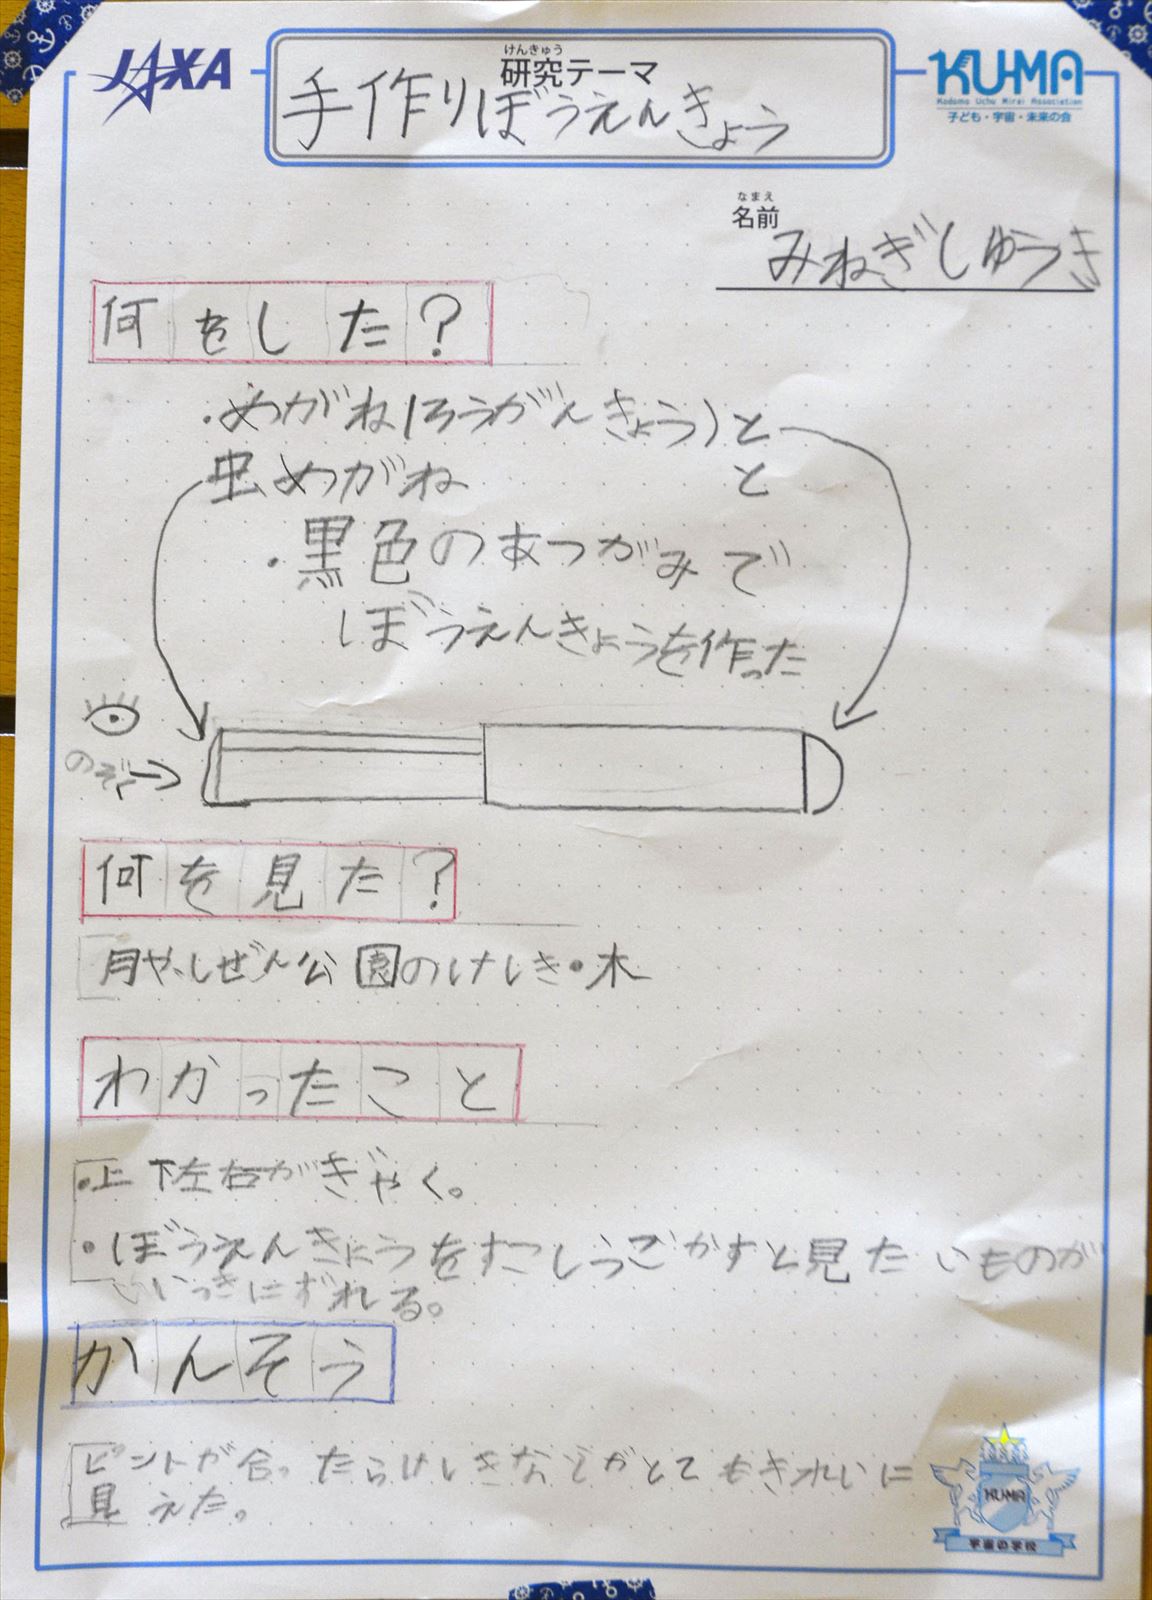 JAXA
けんきゅう
研究テーマ
手作りぼうえんきょう
KU-MA
Kodomo Uchu Mirai Association
子ども・宇宙・未来の会
なまえ
名前
みねぎしゆうき
何をした?
・めがね(ろうがんきょう)と
虫めがね と
・黒色のあつがみで
ぼうえんきょうを作った
のぞく→
何を見た?
月や、しぜん公園のけしき・木
わかったこと
・上下左右がぎゃく。
・ぼうえんきょうをすこしうごかすと見たいものが
いっきにずれる。
かんそう
ピントが合ったらけしきなどがとてもきれいに
見えた。
KU-MA
宇宙の学校